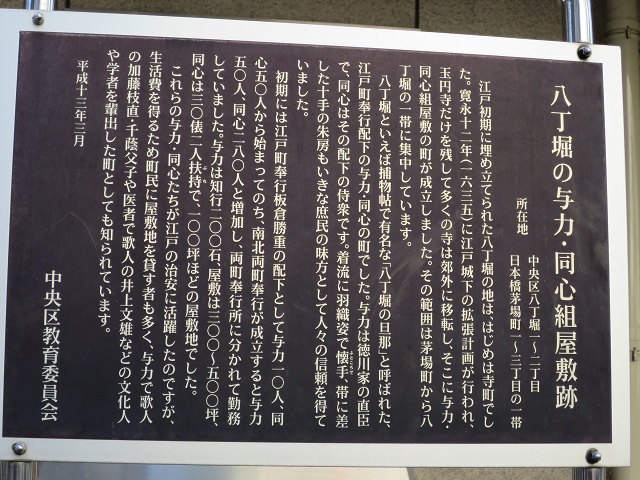 八丁堀の与力・同心組屋敷跡
所在地　中央区八丁堀一～二丁目
日本橋茅場町一～三丁目の一帯
江戸初期に埋め立てられた八丁堀の地は、はじめは寺町でし
た。寛永十二年(一六三五)に江戸城下の拡張計画が行われ、
玉円寺だけを残して多くの寺は郊外に移転し、そこに与力・
同心組屋敷の町が成立しました。その範囲は茅場町から八
丁堀の一帯に集中しています。
八丁堀といえば捕物帖で有名な「八丁堀の旦那」と呼ばれた、
江戸町奉行配下の与力・同心の町でした。与力は徳川家の直臣
で、同心はその配下の侍衆です。着流に羽織姿で懐手、帯に差
した十手の朱房もいきな庶民の味方として人々の信頼を得て
いました。
初期には江戸町奉行板倉勝重の配下として与力一〇人、同
心五〇人から始まってのち、南北両町奉行が成立すると与力
五〇人、同心二八〇人と増加し、両町奉行所に分かれて勤務
していました。与力は知行二〇〇石、屋敷は三〇〇～五〇〇坪、
同心は三〇俵二人扶持で、一〇〇坪ほどの屋敷地でした。
これらの与力・同心たちが江戸の治安に活躍したのですが、
生活費を得るため町民に屋敷地を貸す者も多く、与力で歌人
の加藤枝直・千蔭父子や医者で歌人の井上文雄などの文化人
や学者を輩出した町としても知られています。
平成十三年三月
中央区教育委員会